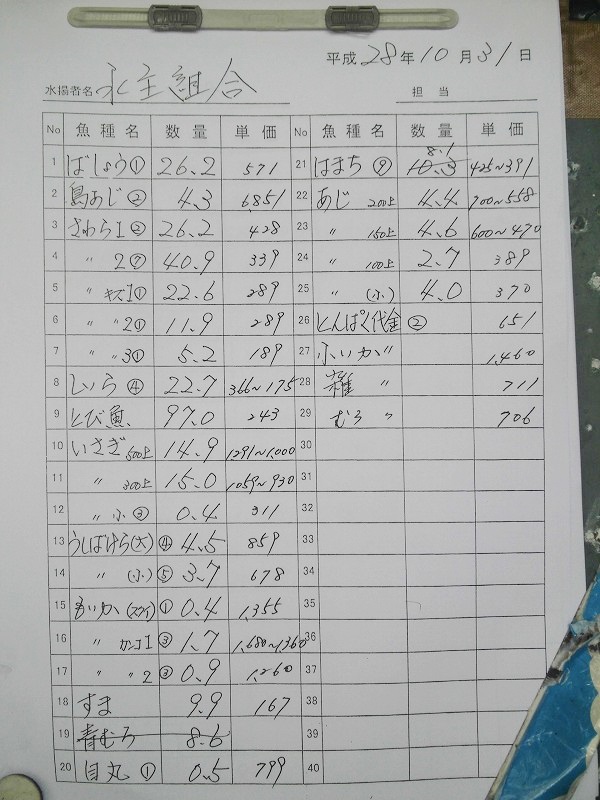 平成 28年 10月 31日
水揚者名 永宝組合 担当
No 魚種名 数量 単価 No 魚種名 数量 単価
1 ばしょう① 26.2 571 21 はまち⑨ 10.3 8.1 425~391
2 島あじ② 4.3 6,851 22 あじ 200上 4.4 700~558
3 さわら1② 26.2 428 23 〃 150上 4.6 600~470
4 〃 2⑦ 40.9 339 24 〃 100上 2.7 389
5 〃 キズ1① 22.6 289 25 〃 (小) 4.0 370
6 〃 〃2① 11.9 289 26 とんぱく代金② 651
7 〃 〃3① 5.2 189 27 ふいか〃 1,460
8 しいら④ 22.7 366~175 28 雑 〃 711
9 とび魚 97.0 243 29 むろ 〃 706
10 いさぎ 500上 14.9 1291~1,000 30
11 〃 300上 15.0 1059~930 31
12 〃 小③ 0.4 311 32
13 うしばけら(大)④ 4.5 859 33
14 〃 (小)⑤ 3.7 678 34
15 もいか(スタイ)① 0.4 1,355 35
16 〃 カンコ1③ 1.7 1,680~1360 36
17 〃 〃2③ 0.9 1,260 37
18 すま 9.9 167 38
19 青むろ 8.6 39
20 目丸① 0.5 799 40